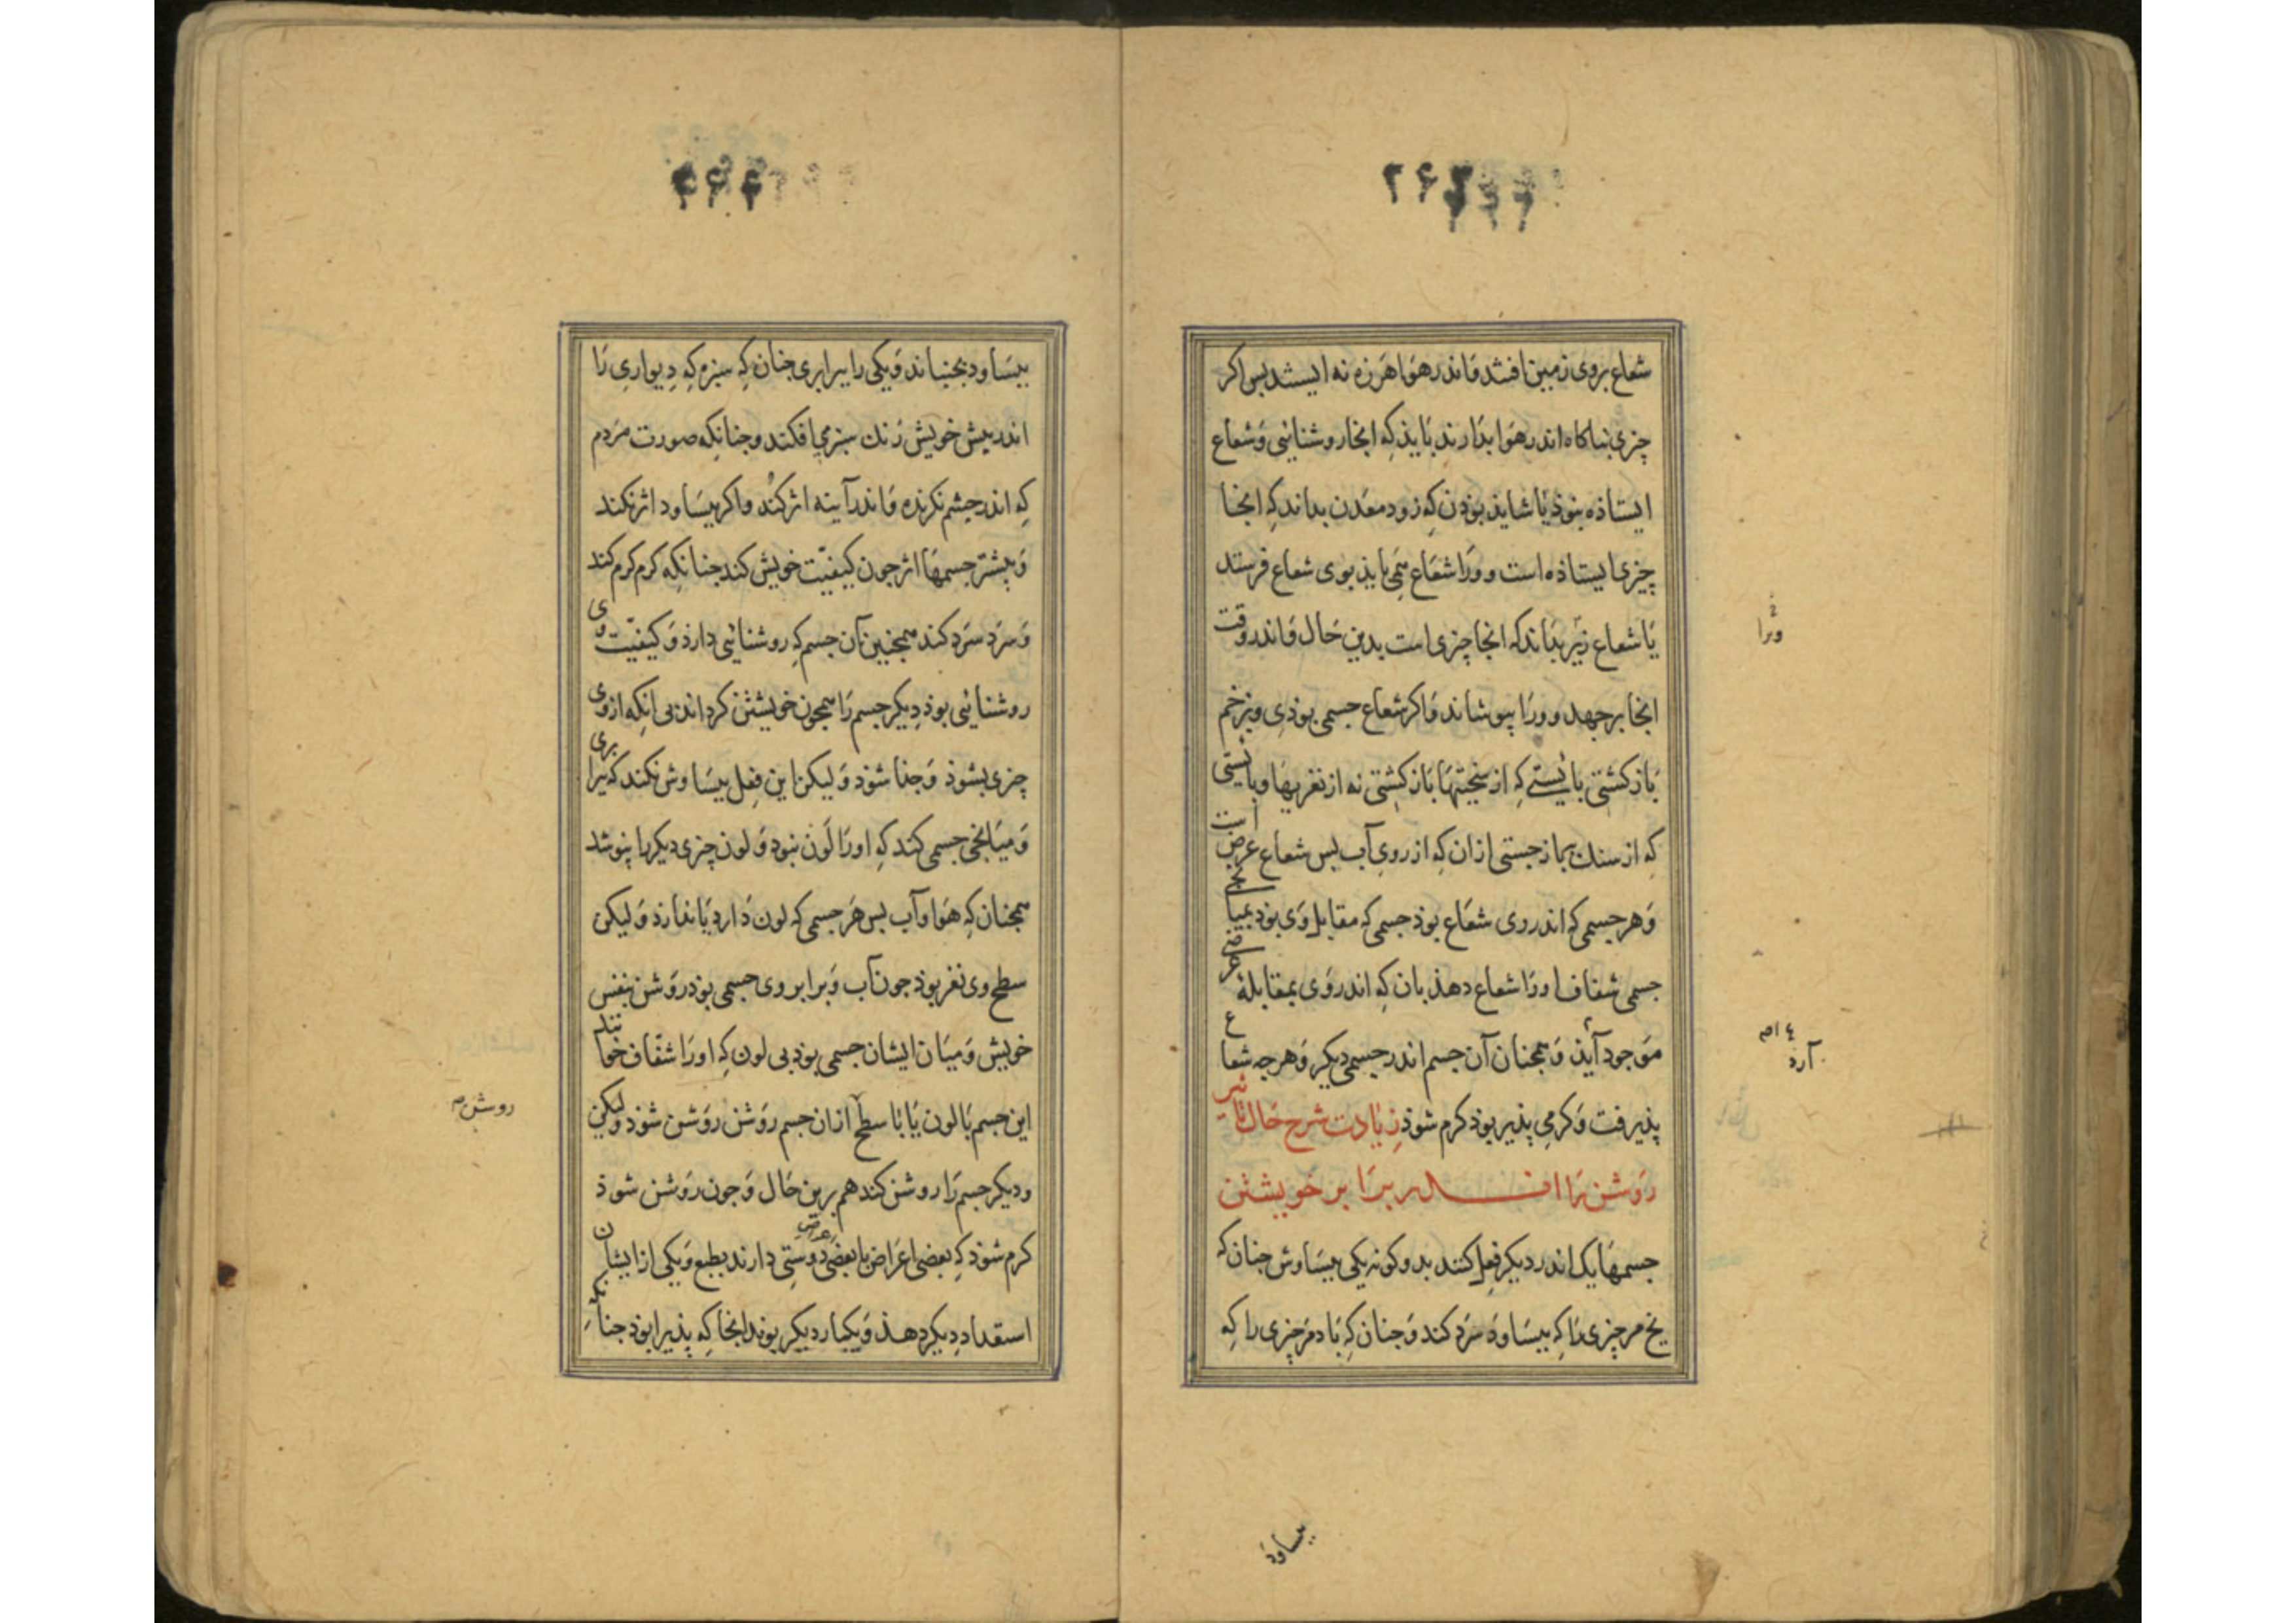 ۲۶۳
شعاع بروی زمین افتد و اندر هوا هرزه نه ایستد بس اکر
چزی بناکاه اندر هوا بدارند باید که انجا روشنایی و شعاع
ایستاذه بنوذ یا شاید بوذن که زود معدن بداند که انجا
چیزی ایستاذه است و ورا شعاع همی باید بوی شعاع فرستد
یا شعاع نیز بداند که انجا چزی است بدین حال و اندر وقت
انجا برجهد و ورا بپوشاند و اکر شعاع جسمی بوذی و بزخم
باز کشتی بایستی که از سختیها باز کشتی نه از نغزیها و بایستی
که از سنک بماز جستی ازان که از روی آب بس شعاع عرض است
و هر جسمی که اندر وی شعاع بوذ جسمی که مقابل وی بوذ بمیانجی
جسمی شفاف اورا شعاع دهذ بان که اندر وی بمقابله عرضی
موجود آیذ و همجنان آن جسم اندر جسمی دیکر و هرجه شعاع
پذیرفت و کرمی پذیر بوذ کرم شوذ زیادت شرح حال تاثیر
روشن را اندر برابر خویشتن
جسمها یک اندر دیکر فعل کنند بدو کونه یکی ببساوش جنان که
یخ مر چزی را که ببساود سرد کند و جنان که باد مر چزی را که
ویرا
آرد
ببساود
ببساود بجنباند و یکی را ببرابری جنان که سبزه که دیواری را
اندر پیش خویش رنک سبز می افکند و جنانکه صورت مردم
که اندر جشم نکرنده و اندر آینه اثر کند و اکر ببساود اثر نکند
و بیشتر جسمها اثر جون کیفیّت خویش کند جنانکه کرم کرم کند
و سرد سرد کند همجنین آن جسم که روشنایی دارذ و کیفیّت وی
روشنایی بوذ دیکر جسم را همجون خویشتن کرداند بی انکه از وی
چزی بشوذ و جذا شوذ و لیکن این فعل ببساوش نکند که ببرابری
و میانجی جسمی کند که اورا لون نبود و لون چزی دیکر را پنوشد
همجنان که هوا و آب بس هر جسمی که لون دارد یا ندارذ و لیکن
سطح وی نغز بوذ جون آب و برابر وی جسمی بوذ روشن بنفس
خویش و میان ایشان جسمی بوذ بی لون که اورا شفّاف خوانند
این جسم با لون یا با سطح ازان جسم روشن روشن شوذ ولیکن
و دیکر جسم را روشن کند هم برین حال و جون روشن شوذ
کرم شوذ که بعضی اعراض با بعضی عرض دوستی دارند بطبع و یکی از ایشان
استعداد دیکر دهذ و یکبار دیکر بوند انجا که پذیرا بوذ جنانکه
روشن